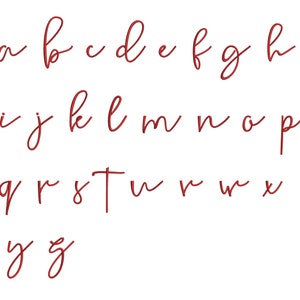 a b c d e f g h
i j k l m n o p
q r s T u v w x
y z